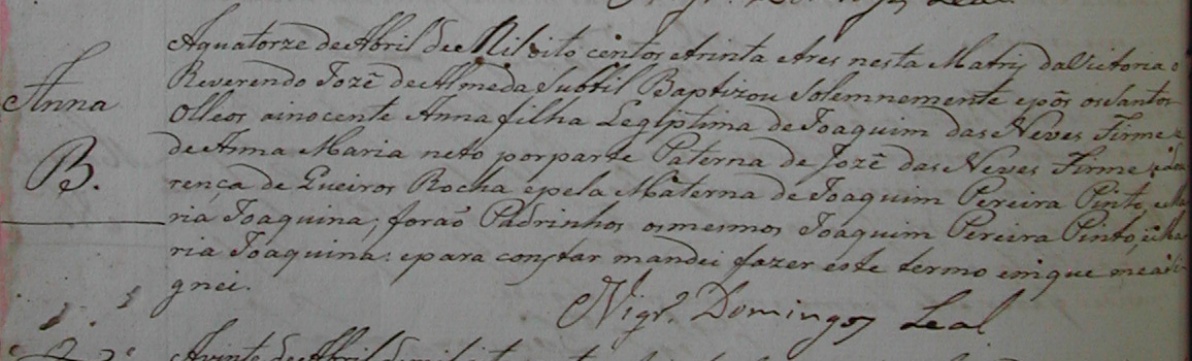 Leal
Aquatorze de Abril de Mil oito centos etrinta etres nesta Matriz daVictoria o
Reverendo Jozẽ de Almeda Subtil Baptizou Solemnemente epôs osSantos
Anna
Olleos ainocente Anna filha Legiptima de Joaquim das Neves Firme
de Anna Maria neto porparte Paterna de Jozẽ das Neves Firme
B.
rença de Queiros Rocha epela Materna de Joaquim Pereira Pinto eMa
ria Joaquina, foraõ Padrinhos osmesmos Joaquim Pereira Pinto, eMa
ria Joaquina: epara constar mandei fazer este termo emque measi
gnei.
Vigr.º Domingos Leal
Avinte de Abril